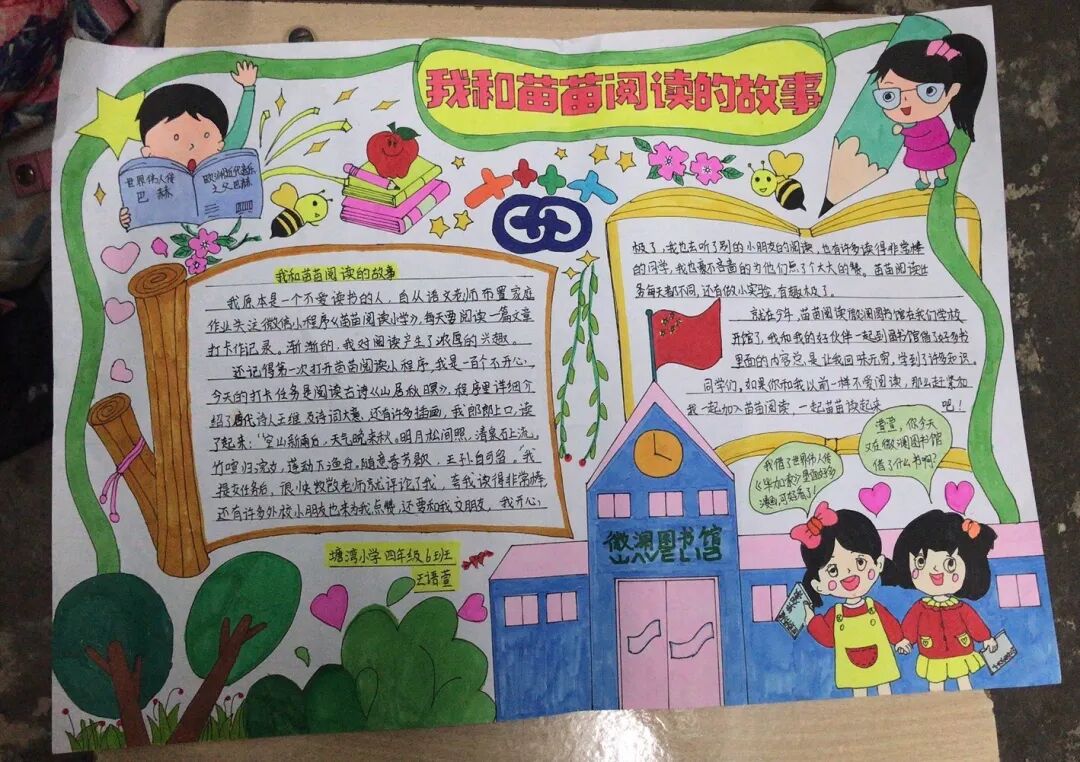 我和苗苗阅读的故事
世界伟人传
巴赫
欧洲近代音乐
之父巴赫
我和苗苗阅读的故事
我原本是一个不爱读书的人,自从语文老师布置家庭
作业关注微信小程序《苗苗阅读小学》,每天要阅读一篇文章
打卡作记录。渐渐的,我对阅读产生了浓厚的兴趣。
还记得第一次打开苗苗阅读小程序,我是一百个不开心,
今天的打卡任务是阅读古诗《山居秋暝》,程序里详细介
绍了唐代诗人王维及诗词大意,还有许多插画,我郎郎上口,读
了起来:“空山新雨后,天气晚来秋。明月松间照,清泉石上流,
竹喧归浣女,莲动下渔舟,随意春芳歇,王孙自可留。”我
提交任务后,很快数数老师就评论了我,夸我读得非常棒
还有许多外校小朋友也来为我点赞,还要和我交朋友,我开心
塘湾小学四年级6班
王语萱
极了,我也去听了别的小朋友的阅读,也有许多读得非常棒
的同学,我也毫不吝啬的为他们点了大大的赞。苗苗阅读任
务每天都不同,还有做小实验,有趣极了。
就在今年,苗苗阅读微澜图书馆在我们学校
开馆了,我和我的好伙伴一起到图书馆借了好多书
里面的内容总是让我回味无穷,学到了许多知识。
同学们,如果你和我以前一样不爱阅读,那么赶紧和
我一起加入苗苗阅读,一起苗苗读起来 吧!
萱萱,你今天
又在微澜图书馆
借了什么书啊?
我借了世界伟人传
《毕加索》里面好多
漫画,可好看了!
微澜图书馆